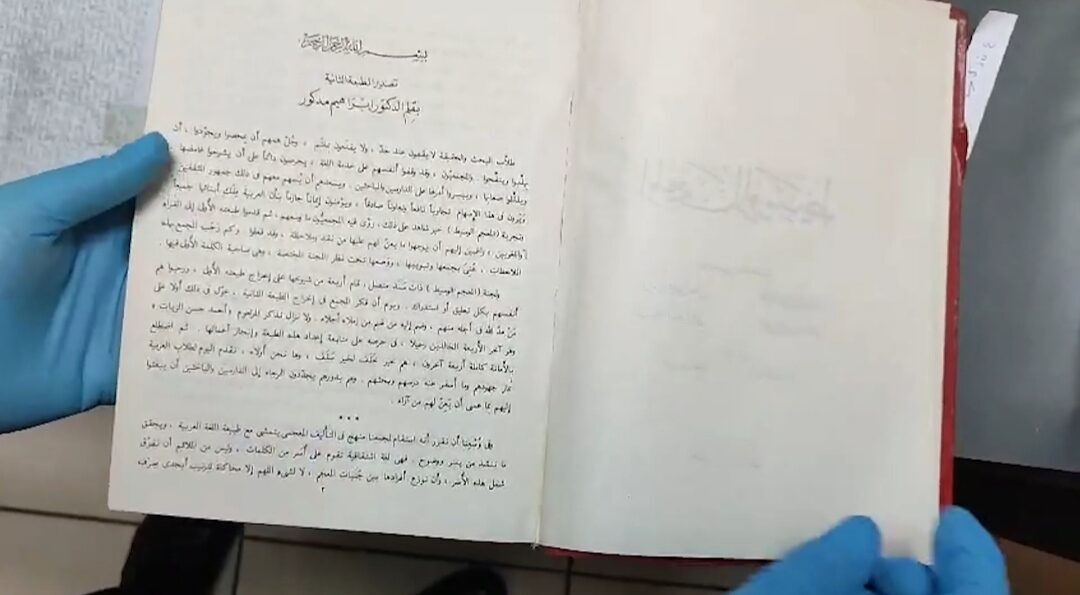 بسم الله الرحمن الرحيم
تصدير الطبعة الثانية
بقلم الدكتور إبراهيم مدكور
طلاب البحث والحقيقة لا يقفون عند حدّ ، ولا يقنعون بقلّم ، وجُلّ همهم أن يمحصوا ويجوّدوا ، أن
يهذّبوا وينقّحوا . والمجمعيون ، وقد وقفوا أنفسهم على خدمة اللغة ، يحرصون دائماً على أن يشرحوا غامضها ،
ويذلّلوا صعابها ، وييسروا أمرها على الدارسين والباحثين . ويسعدهم أن يُسهم معهم في ذلك جمهور المثقفين
ويَرَون في هذا الإسهام تجاوباً نافعاً وتعاوناً صادقاً ، ويؤمنون إيماناً جازماً بأن العربية مِلك أبنائها جميعاً
وتجربة ( المعجم الوسيط ) خير شاهد على ذلك ، روّى فيه المجمعيون ما وسعهم ، ثم قدموا طبعته الأولى إلى القراء
واللغويين ؛ راغبين إليهم أن يوجهوا ما يعنّ لهم عليها من نقد وملاحظة . وقد فعلوا . وكم رحّب المجمع بهذه
الملاحظات ، عُني بجمعها وتبويبها ، ووضعها تحت نظر اللجنة المختصة ، وهي صاحبة الكلمة الأولى فيها .
ولجنة ( المعجم الوسيط ) ذات سند متصل ، قام أربعة من شيوخها على إخراج طبعته الأولى ، ورحبوا هم
أنفسهم بكل تعليق أو استدراك . ويوم أن فكر المجمع في إخراج الطبعة الثانية ، عوّل في ذلك أولا على
مَنْ مدّ الله في أجله منهم ، وضم إليه من ضم من زملاء أجلاء . ولا نزال نذكر المرحوم « أحمد حسن الزيات »
وهو آخر الأربعة الخالدين رحيلا ، في حرصه على متابعة إعداد هذه الطبعة وإنجاز أعمالها . ثم اضطلع
بالأمانة كاملة أربعة آخرون ، هم خير خَلَف لخير سَلَف ، وها نحن أولاء ، نقدم اليوم لطلاب العربية
ثمار جهودهم وما أسفر عنه درسهم وبحثهم . وهم بدورهم يجدّدون الرجاء إلى الدارسين والباحثين أن يبعثوا
إليهم بما عسى أن يَعِنّ لهم من آراء .
* * *
وفي وُسْعِنا أن نقرر أنه استقام لمجمعنا منهج في التأليف المعجمي يتمشى مع طبيعة اللغة العربية ، ويحقق
ما ننشد من يسر ووضوح . فهي لغة اشتقاقية تقوم على أُسَر من الكلمات ، وليس من الملائم أن نفرّق
شمل هذه الأُسر ، وأن نوزع أفرادها بين جُنَبات المعجم ، لا لشيء اللهم إلا محاكاة لترتيب أبجدي صِرف
٣